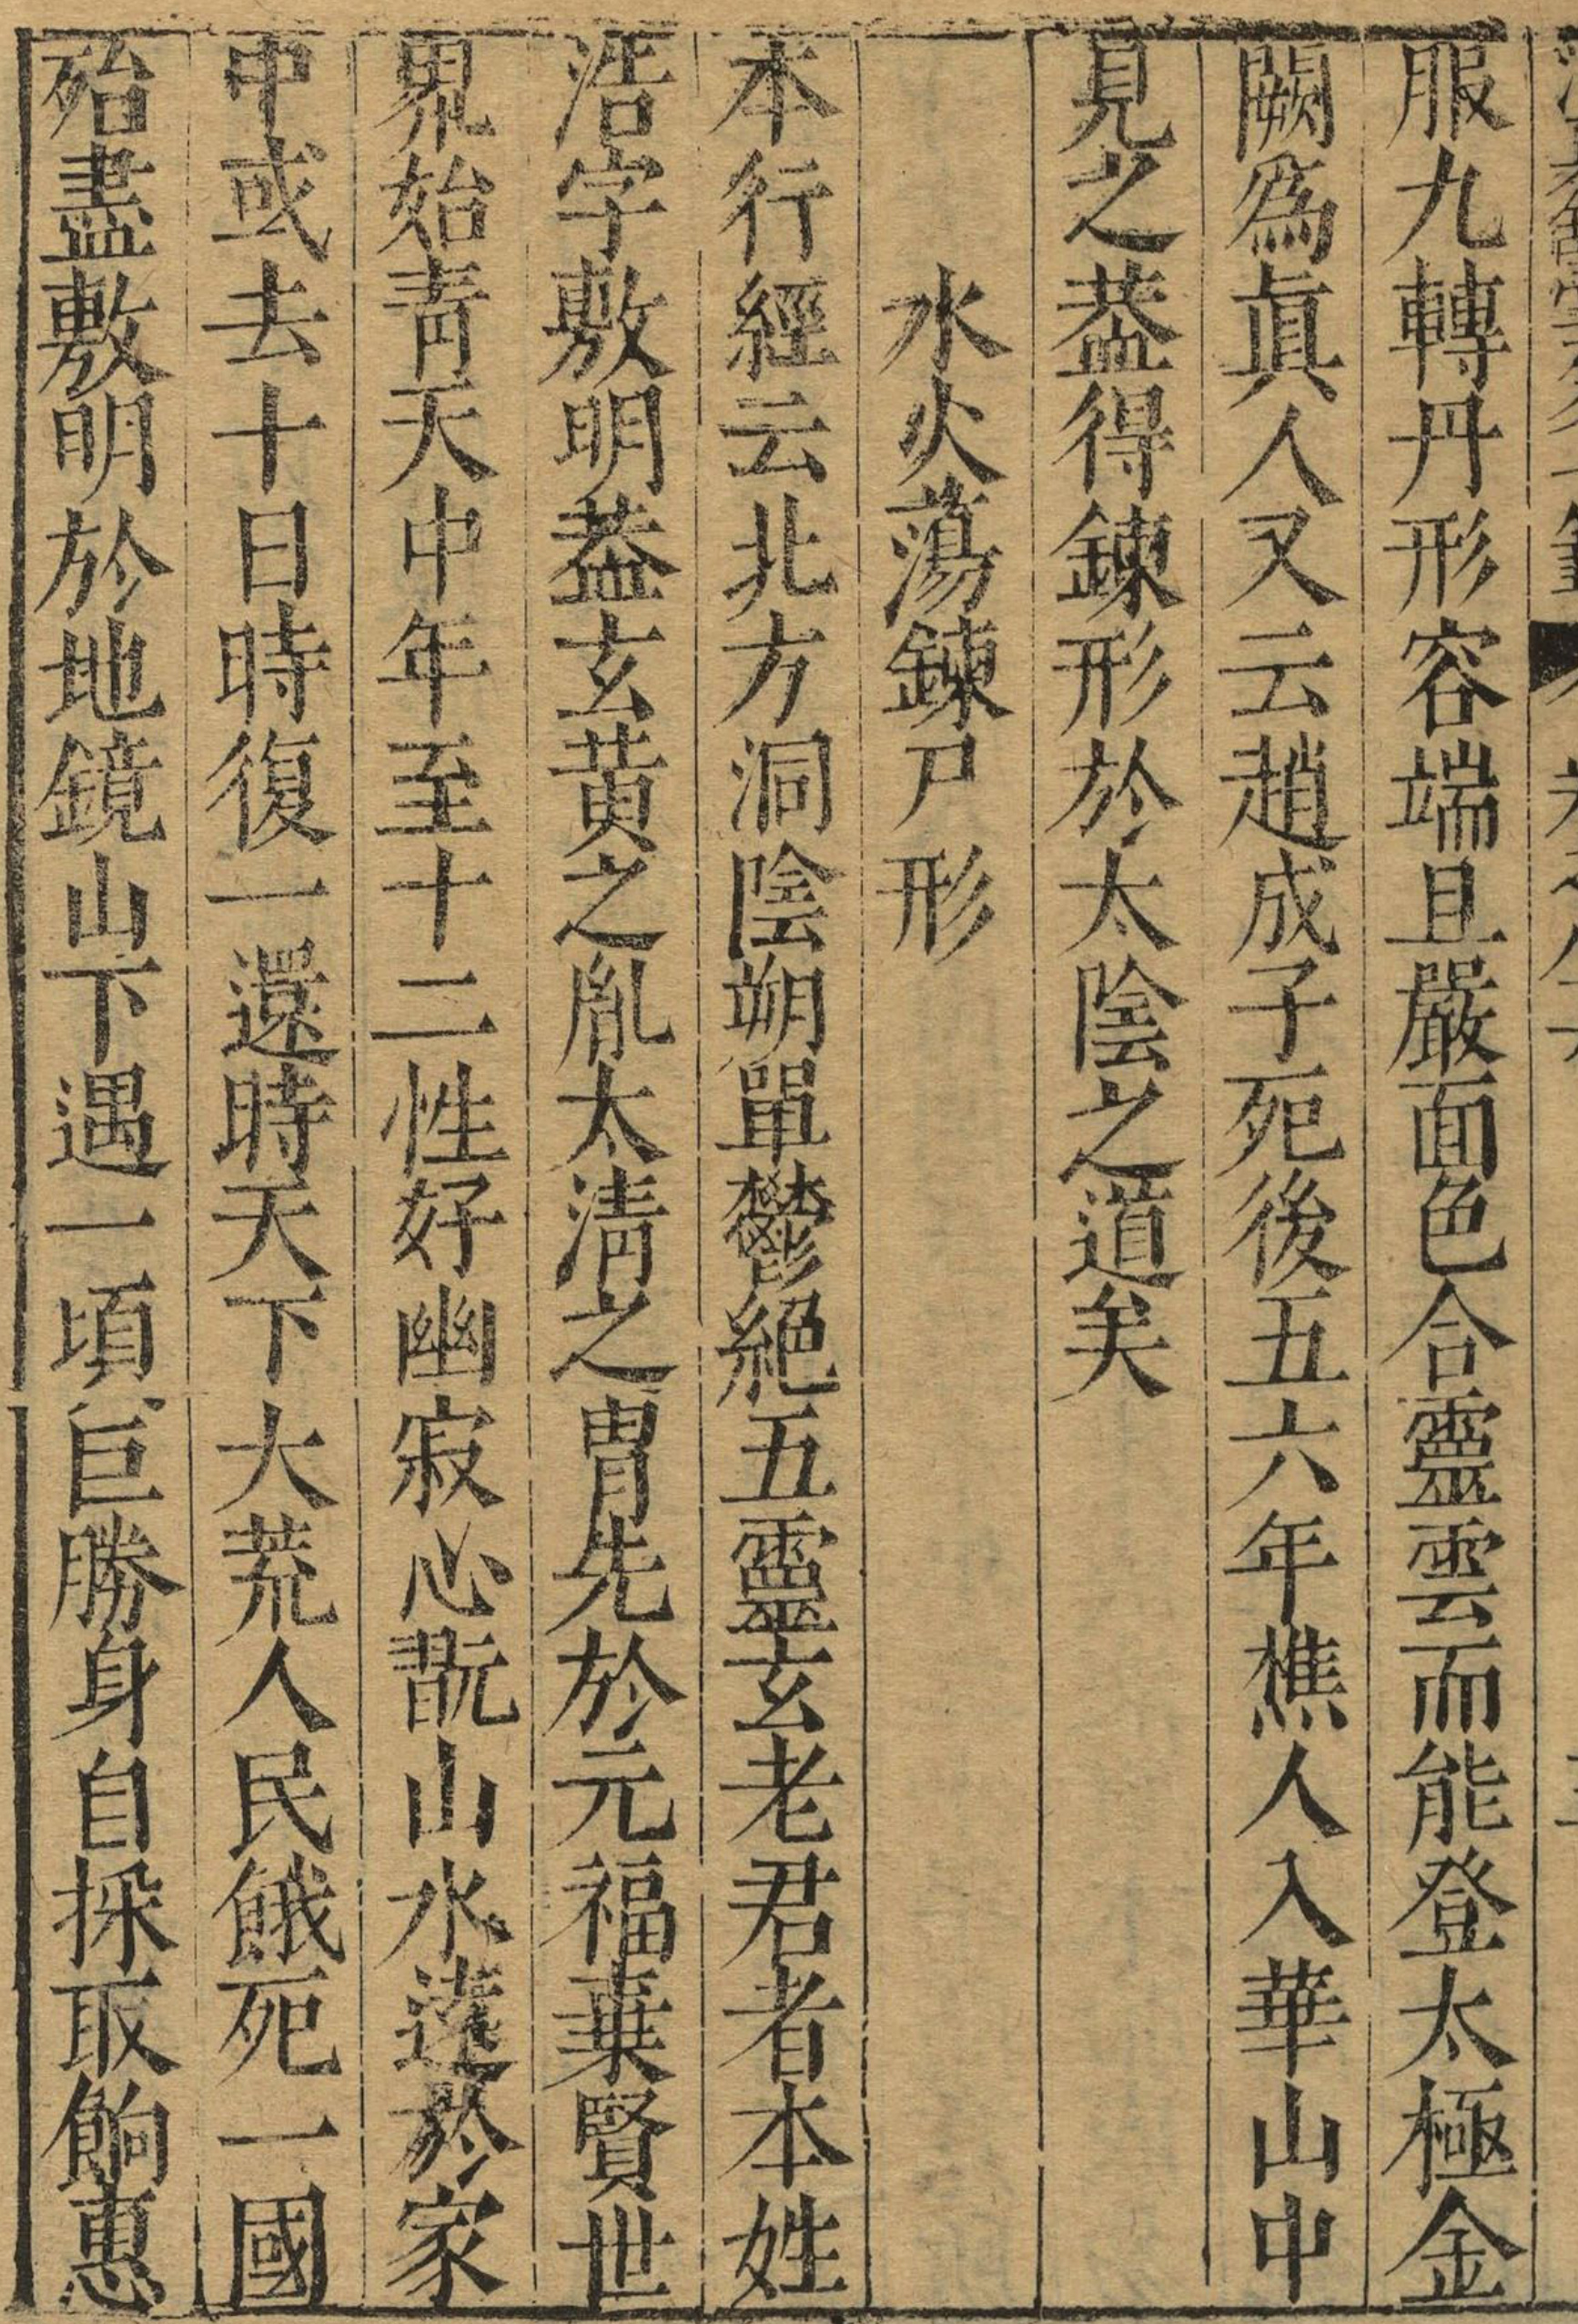 服九轉丹形容端且嚴面色合靈雲而能登太極金
闕爲眞人又云趙成子死後五六年樵人入華山中
見之蓋得鍊形於太陰之道矣
水火蕩鍊尸形
本行經云北方洞陰朔單鬱絕五靈玄老君者本姓
浩字敷明蓋玄黃之胤太清之胄先於元福棄賢世
界始靑天中年至十二性好幽寂心翫山水遠於家
中或去十日時復一還時天下大荒人民餓死一國
殆盡敷明於地鏡山下遇一頃巨勝身自採取餉惠